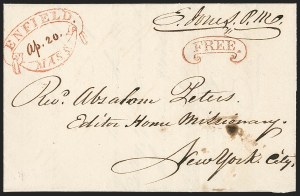 ENFIELD.
Ap. 20.
MASS.
E. Jones, P. M.
FREE.
Rev. Absalom Peters.
Editor Home Missionary.
New York City.